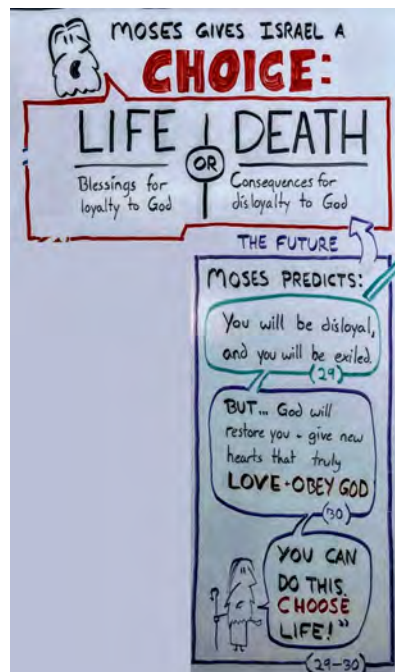 MOSES GIVES ISRAEL A
CHOICE:
LIFE OR DEATH
Blessings for
loyalty to God
Consequences for
disloyalty to God
THE FUTURE
MOSES PREDICTS:
You will be disloyal,
and you will be exiled.
(29)
BUT... God will
restore you - give new
hearts that truly
LOVE + OBEY GOD
(30)
YOU CAN
DO THIS.
CHOOSE
LIFE!"
(29-30)